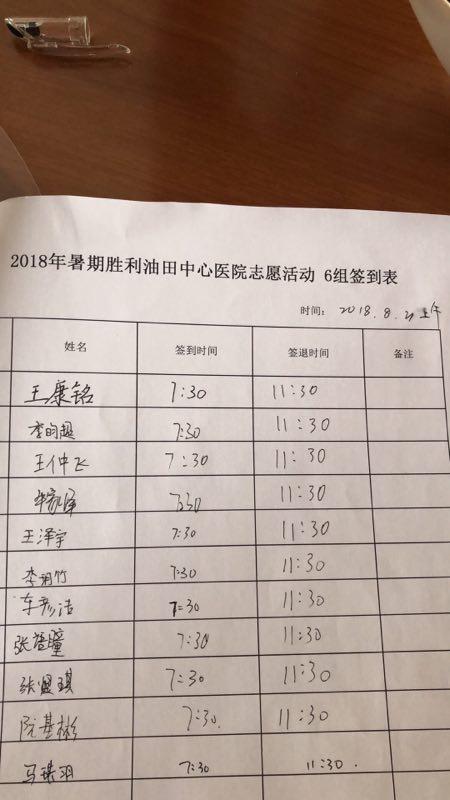 2018年暑期胜利油田中心医院志愿活动 6组签到表
时间: 2018.8.21上午
姓名 签到时间 签退时间 备注
王康铭 7:30 11:30
7:30 11:30
王仲飞 7:30 11:30
7:30 11:30
王泽宇 7:30 11:30
李明竹 7:30 11:30
车彦洁 7:30 11:30
张 瞳 7:30 11:30
张 琪 7:30 11:30
阮基彬 7:30. 11:30
马 羽 7:30 11:30.